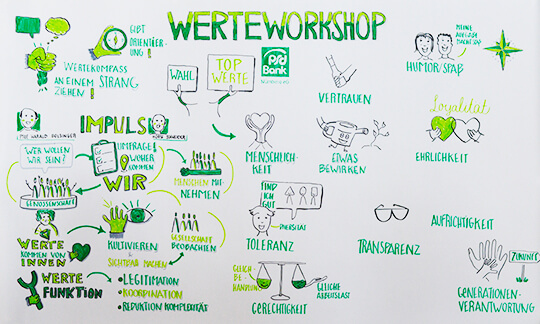 WERTEWORKSHOP
GIBT
ORIENTIERUNG!
WERTEKOMPASS
AN EINEM STRANG
ZIEHEN!
WAHL
TOP
WERTE
PSD
Bank
VERTRAUEN
MEINE
HUMOR/SPAß
IMPULS
WER WOLLEN
WIR SEIN?
UMFRAGE!
WOHER
KOMMEN
WIR
GENOSSENSCHAFT
MENSCHEN MIT-
NEHMEN
WERTE
KOMMEN VON
INNEN
KULTIVIEREN
&
SICHTBAR MACHEN
GESELLSCHAFT
BEOBACHTEN
WERTE
FUNKTION
•LEGITIMATION
•KOORDINATION
•REDUKTION KOMPLEXITÄT
MENSCHLICH-
KEIT
ETWAS
BEWIRKEN
Loyalität
EHRLICHKEIT
FIND
ICH
GUT
DIVERSITÄT
TOLERANZ
TRANSPARENZ
AUFRICHTIGKEIT
GLEICH-
BE-
HANDLUNG
GLEICHE
ARBEITSLAST
GERECHTIGKEIT
ZUKUNFT
GENERATIONEN-
VERANTWORTUNG